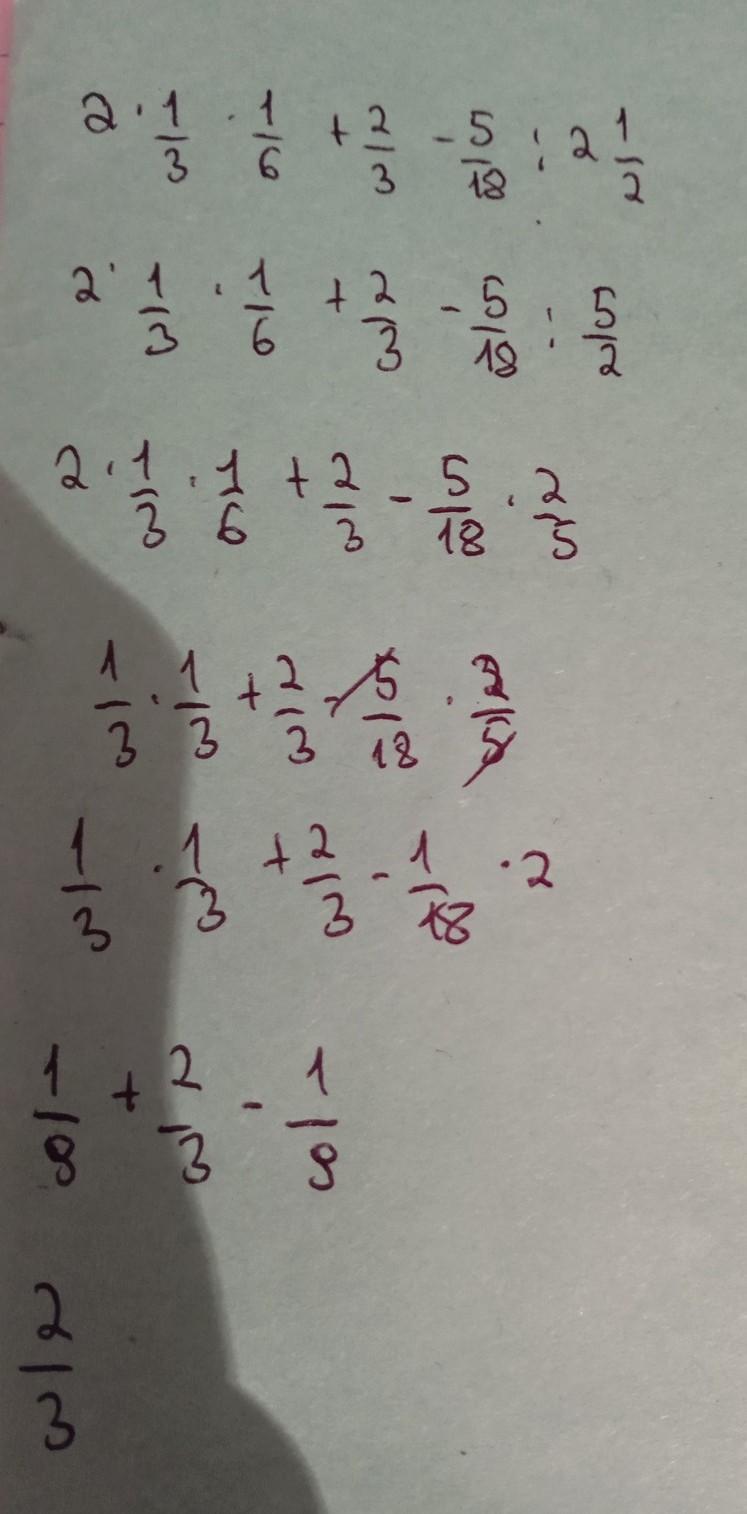 2 · 1/3 · 1/6 + 2/3 - 5/18 : 2 1/2
2 · 1/3 · 1/6 + 2/3 - 5/18 : 5/2
2 · 1/3 · 1/6 + 2/3 - 5/18 · 2/5
1/3 · 1/3 + 2/3 - 5/18 · 2/5
1/3 · 1/3 + 2/3 - 1/18 · 2
1/9 + 2/3 - 1/9
2/3